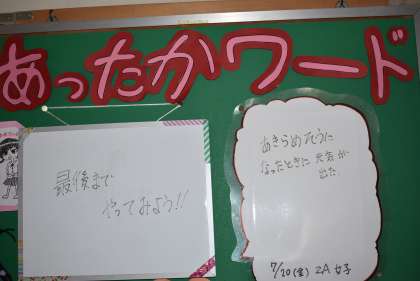 あったかワード
最後まで
やってみよう!!
あきらめそうに
なったときに 元気が
出た
7/20(金) 2A 女子